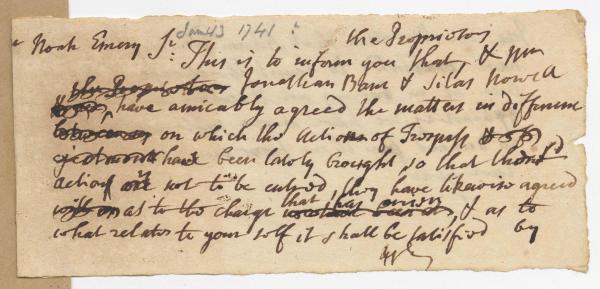 Jan 43 1741
Noah Emery Sr. the Proprietors
This is to inform you that, & Mr
the Proprietors Jonathan Bane & Silas Nowell
have amicably agreed the matters in difference
on which the Actions of Trespass
have been lately brought, so that
action not to be entred, they have likewise agreed
as to the charge that has arisen, & as to
what relates to your self it shall be satisfied by